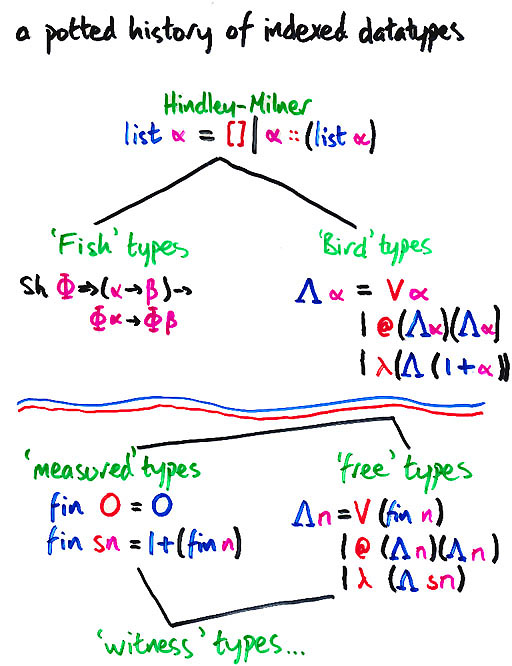 a potted history of indexed datatypes
Hindley-Milner
list α = [] | α :: (list α)
'Fish' types
Sh Φ ⇒ (α → β) →
Φ α → Φ β
'Bird' types
Λ α = V α
| @ (Λ α) (Λ α)
| λ (Λ (1 + α))
'measured' types
fin O = O
fin sn = 1 + (fin n)
'free' types
Λ n = V (fin n)
| @ (Λ n) (Λ n)
| λ (Λ sn)
'witness' types...